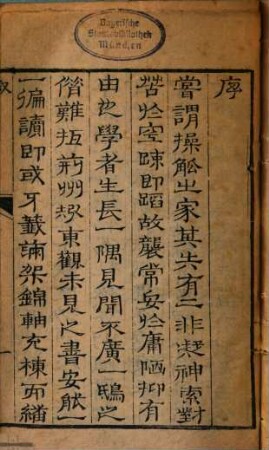 Bayerische
Staatsbibliothek
München
序
嘗謂操觚之家其失有二非凝神索對
苦於空疎即蹈故襲常安於庸陋抑有
由也學者生長一隅見聞不廣一鴟之
借難抵荊州衫東觀未見之書安能一
一徧讀即或牙籤滿架錦軸充棟而繙